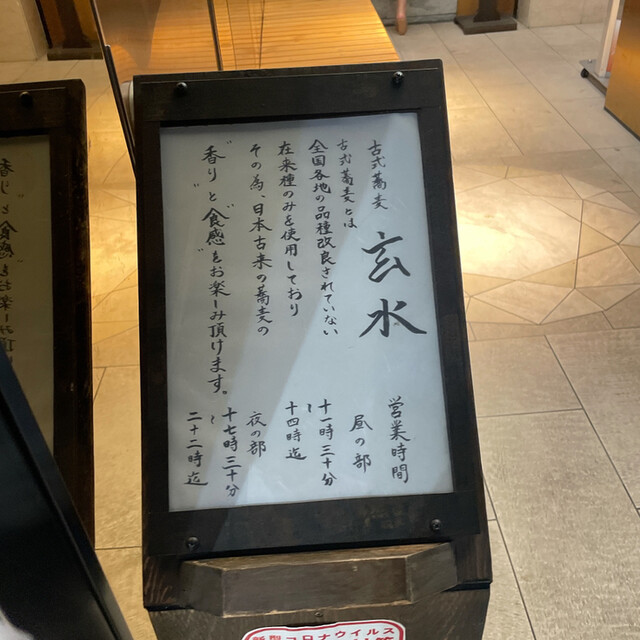 古式蕎麦
玄水
古式蕎麦とは
全国各地の品種改良されていない
在来種のみを使用しており
その為、日本古来の蕎麦の
"香り"と"食感"をお楽しみ頂けます。
営業時間
昼の部
十一時三十分
〜
十四時迄
夜の部
十七時三十分
〜
二十二時迄
香り"と"食感"をお楽しみ頂け
新型コロナウイルス